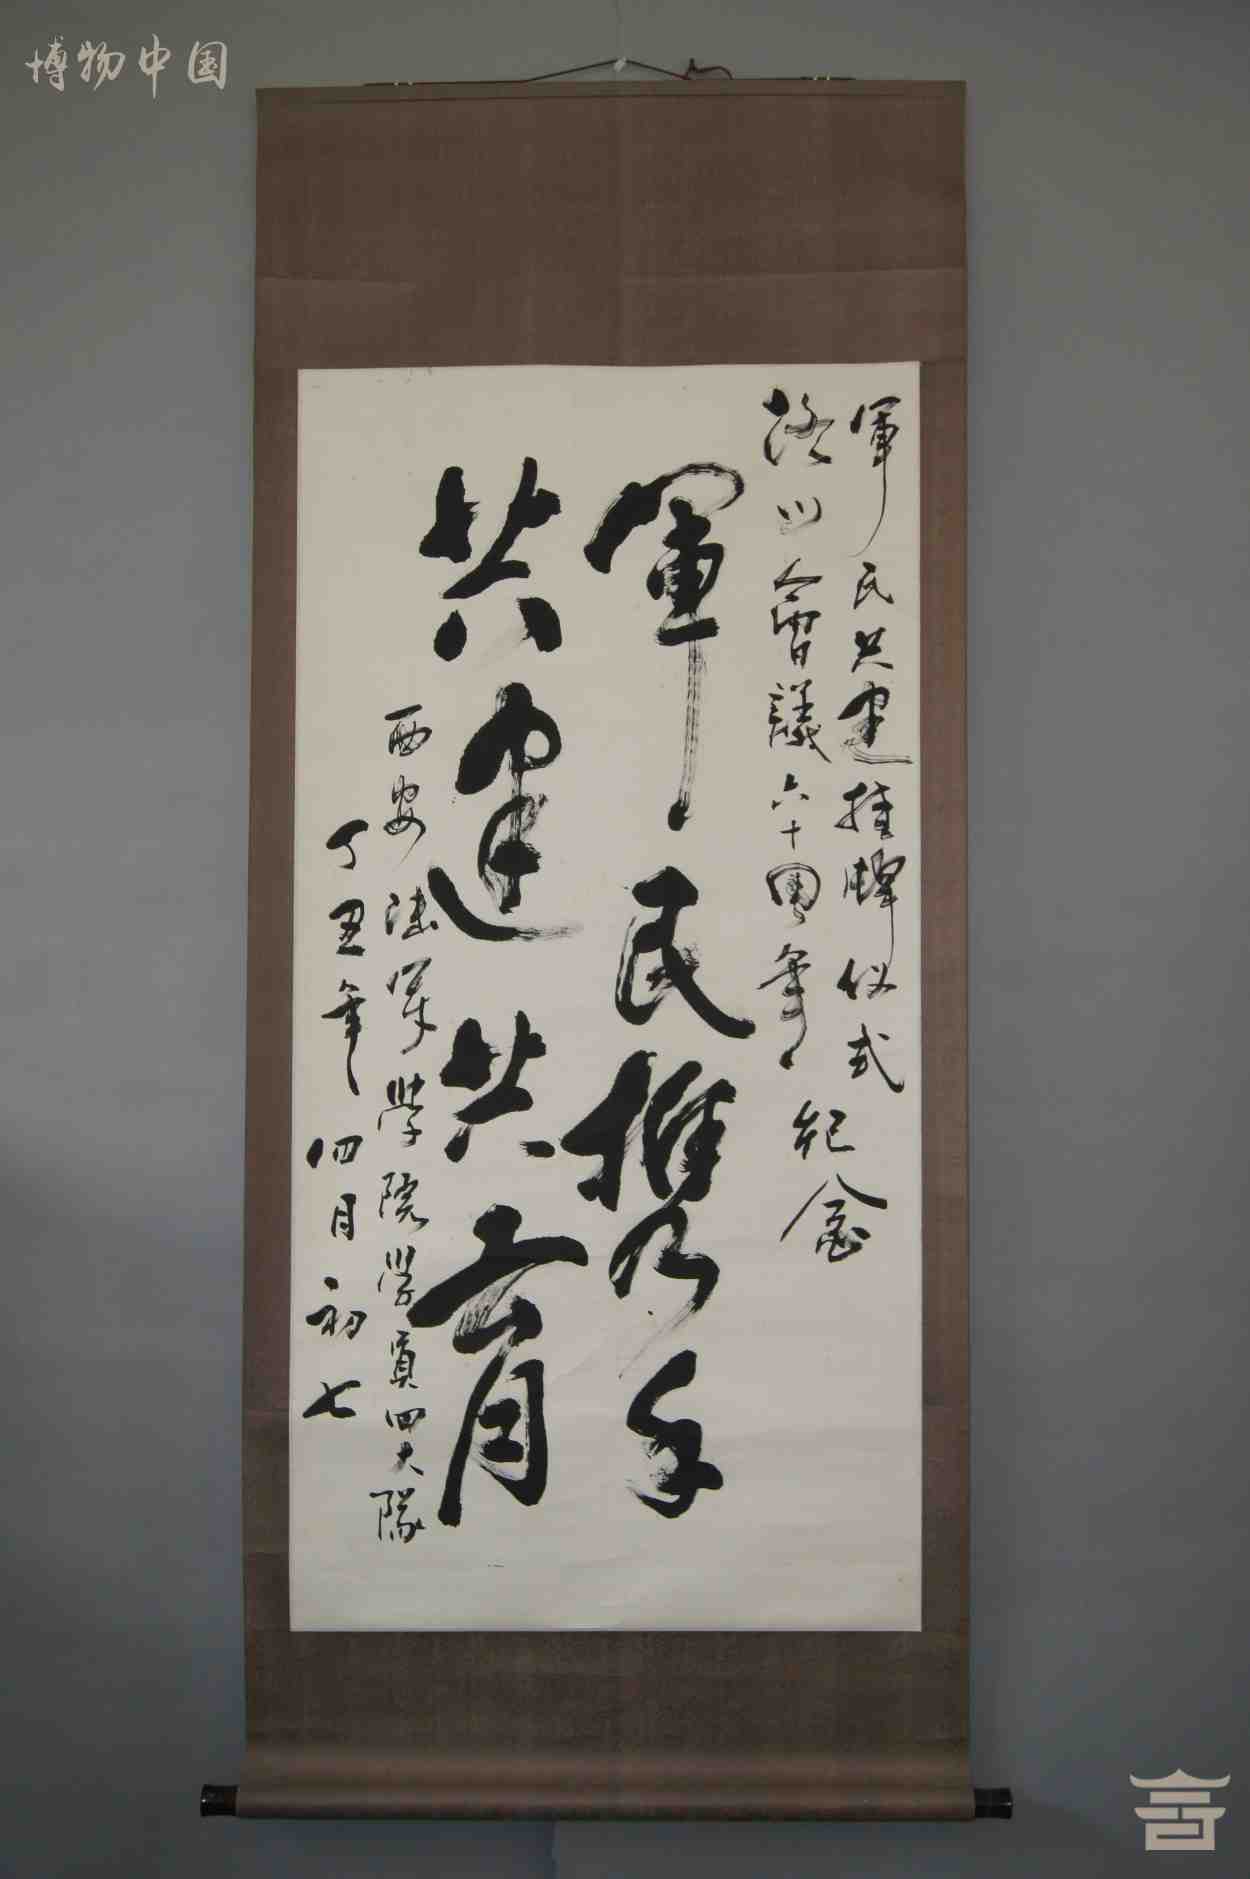 博物中国
軍民共建挂牌仪式
洛川會議六十周年
紀念
軍民携手
共建共育
西安陆军學院學員四大隊
丁丑年四月初七